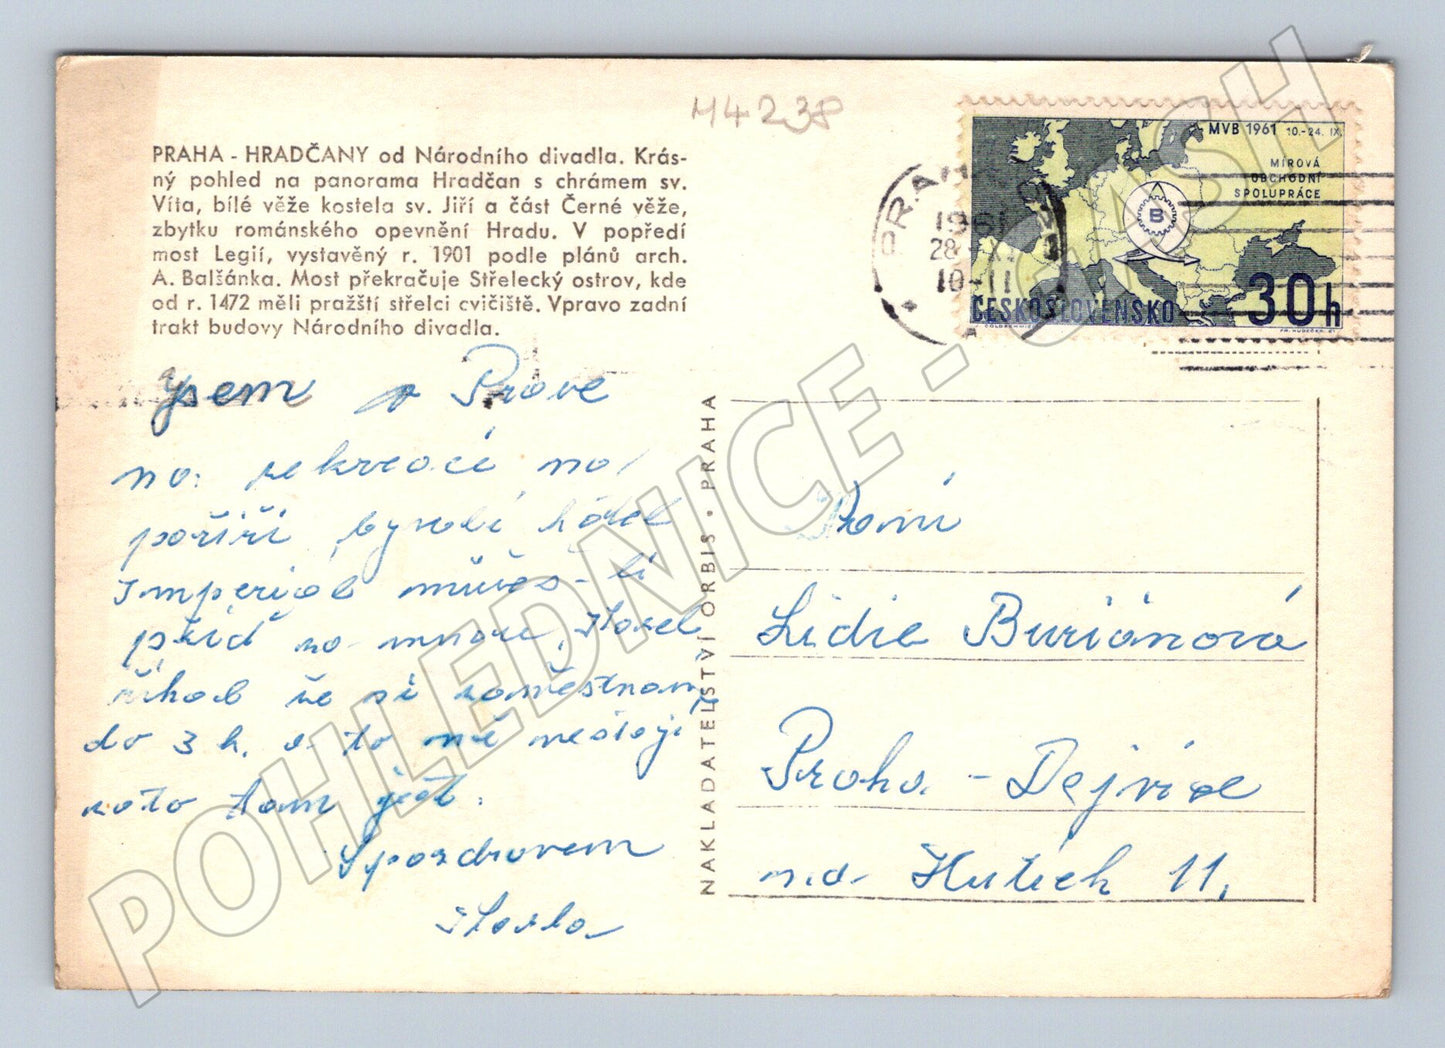 44238
PRAHA - HRADČANY od Národního divadla. Krás-
ný pohled na panorama Hradčan s chrámem sv.
Víta, bílé věže kostela sv. Jiří a část Černé věže,
zbytku románského opevnění Hradu. V popředí
most Legií, vystavěný r. 1901 podle plánů arch.
A. Balšánka. Most překračuje Střelecký ostrov, kde
od r. 1472 měli pražští střelci cvičiště. Vpravo zadní
trakt budovy Národního divadla.
MVB 1961 10.-24. IX.
MÍROVÁ
OBCHODNÍ
SPOLUPRÁCE
B
ČESKOSLOVENSKO
30h
PRAHA
1961
28
10-11
Jsem v Praze
na rekreaci na
poříčí, bývalí hotel
Imperial můžeš-li
přiď za mnou, Karel
říkal že si zaměstnaní
do 3 h. a to mě nestojí
zato tam jet.
S pozdravem
NAKLADATELSTVÍ ORBIS · PRAHA
Paní
Lidie Buriánová
Praha - Dejvice
11.
POHLEDNICE - CASH